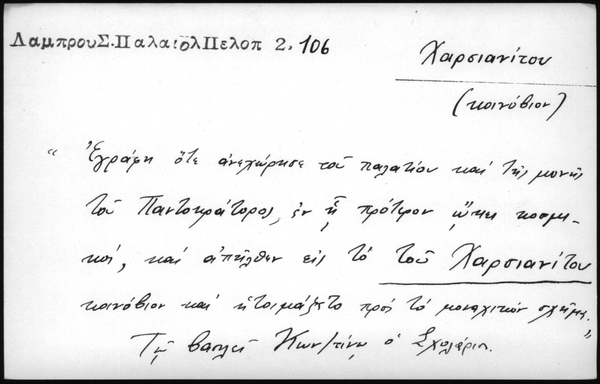 ΛαμπρουΣ.ΠαλαιολΠελοπ 2. 106
Χαρσιανίτου
(κοινόβιον)
“ Ἐγράφη ὅτε ἀνεχώρησε τοῦ παλατίου καί τῆς μονῆς
τοῦ Παντοκράτορος, ἐν ᾗ πρότερον ᾤκει κοσμι-
κῶς, καί ἀπῆλθεν εἰς τό τοῦ Χαρσιανίτου
κοινόβιον καί ἡτοιμάζετο πρός τό μοναχικόν σχῆμα.”
Τῷ βασιλεῖ Κων/τίνῳ ὁ Σχολάριος.